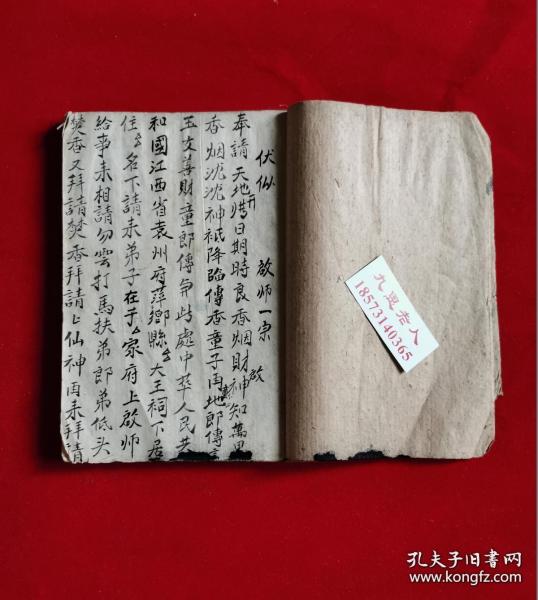 伏仙 啟师一宗 啟
奉請天地借日期時良香烟財神知萬里
香烟沉沉神祇降臨傳香童子雨地郎傳言
玉女善財童郎傳奏此處中華人民共
和國江西省袁州府萍鄉縣大王祠下居
住名下請來弟子在于家府上啟师
給事未相請勿雲打馬扶弟郎弟低头
焚香又拜請焚香拜請上仙神酉来拜請
九思老人
18573140365
孔夫子旧书网
www.kongfz.com